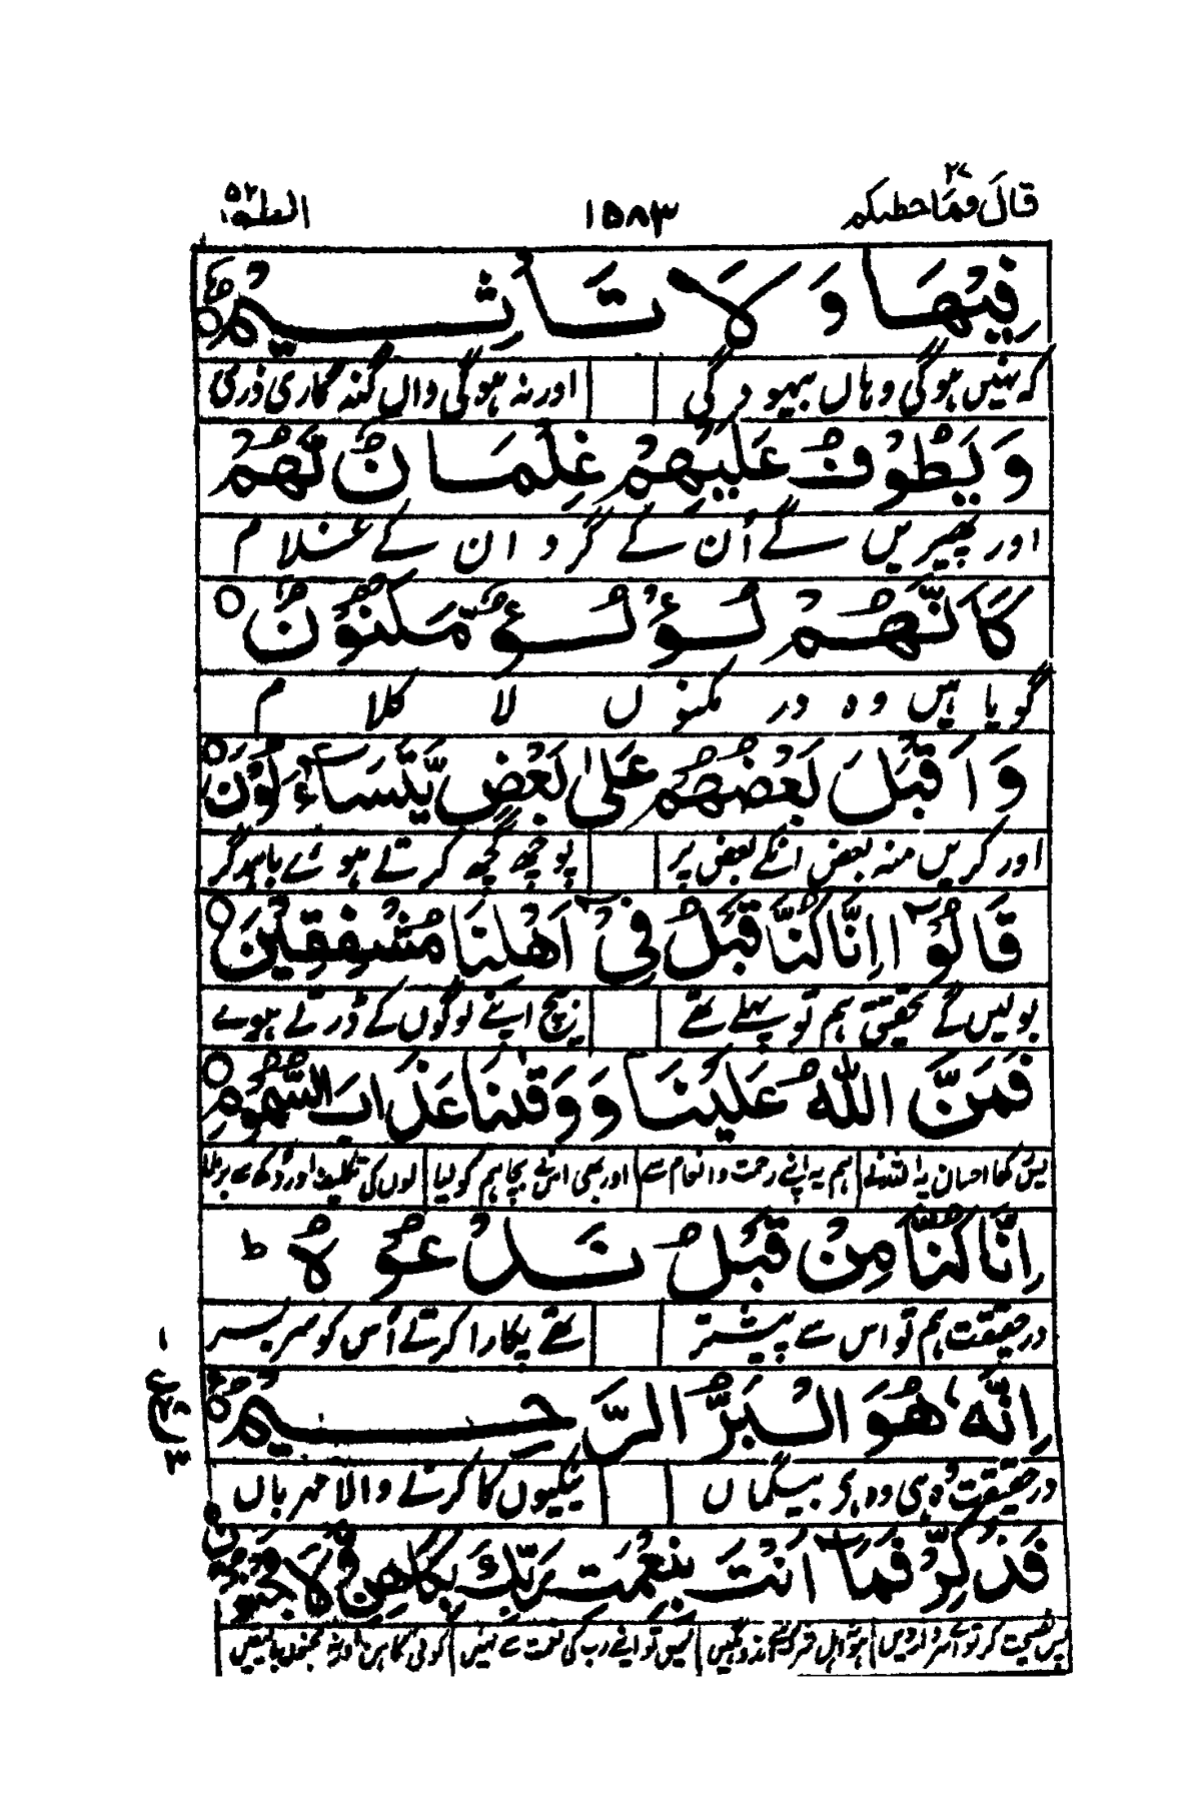 قال فما خطبكم ٢٧ ١٥٨٣ الطور ٥٢
فِيْهَا وَلَا تَاْثِيْمٌ ○
کہ نہیں ہوگی وہاں بیہودگی اور نہ ہوگی واں گنہ گاری ذری
وَيَطُوْفُ عَلَيْهِمْ غِلْمَانٌ لَّهُمْ
اور پھیریں گے اُن کے گرد ان کے غلام
كَاَنَّهُمْ لُؤْلُؤٌ مَّكْنُوْنٌ ○
گویا ہیں وہ در مکنوں لا کلام
وَاَقْبَلَ بَعْضُهُمْ عَلٰى بَعْضٍ يَّتَسَآءَلُوْنَ ○
اور کریں منہ بعض انکے بعض پر پوچھ گچھ کرتے ہوئے باہمدگر
قَالُوْٓا اِنَّا كُنَّا قَبْلُ فِيْٓ اَهْلِنَا مُشْفِقِيْنَ ○
بولیں گے تحقیق ہم تو پہلے تھے بیچ اپنے لوگوں کے ڈرتے ہوے
فَمَنَّ اللّٰهُ عَلَيْنَا وَوَقٰىنَا عَذَابَ السَّمُوْمِ ○
پس کھا احسان یہ اللہ نے ہم پہ اپنے رحمت و انعام سے اور بھی اس نے بچا ہم کو لیا لوں کی تکلیف اور دکھ سے برملا
اِنَّا كُنَّا مِنْ قَبْلُ نَدْعُوْهُ ط
در حقیقت ہم تو اس سے پیشتر تھے پکارا کرتے اُس کو سربسر
اِنَّهٗ هُوَ الْبَرُّ الرَّحِيْمُ ○
در حقیقت وہی وہ ہی بیگماں نیکیوں کا کرنے والا مہرباں
١
ع
٢٨
٣
فَذَكِّرْ فَمَآ اَنْتَ بِنِعْمَتِ رَبِّكَ بِكَاهِنٍ وَّلَا مَجْنُوْنٍ
پس نصیحت کر تو اپنے رب کی نعمت سے نہیں کوئی کاہن اور نہ مجنوں بالیقیں